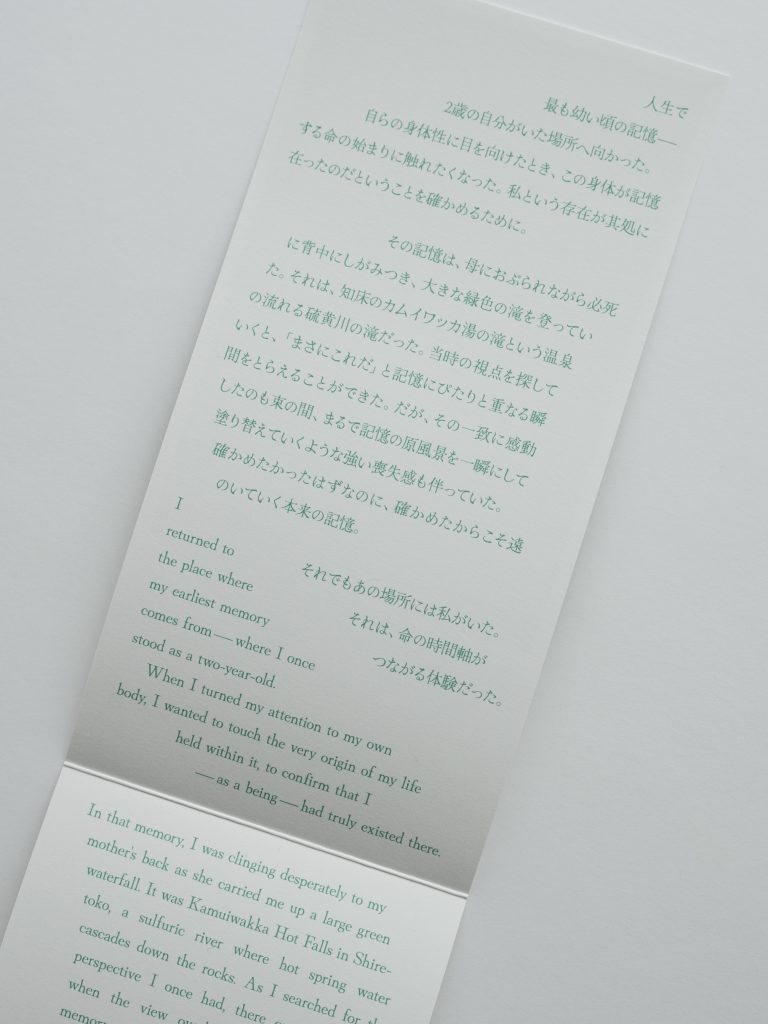 人生で
最も幼い頃の記憶——
2歳の自分がいた場所へ向かった。
自らの身体性に目を向けたとき、この身体が記憶
する命の始まりに触れたくなった。私という存在が其処に
在ったのだということを確かめるために。
その記憶は、母におぶられながら必死
に背中にしがみつき、大きな緑色の滝を登ってい
た。それは、知床のカムイワッカ湯の滝という温泉
の流れる硫黄川の滝だった。当時の視点を探して
いくと、「まさにこれだ」と記憶にぴたりと重なる瞬
間をとらえることができた。だが、その一致に感動
したのも束の間、まるで記憶の原風景を一瞬にして
塗り替えていくような強い喪失感も伴っていた。
確かめたかったはずなのに、確かめたからこそ遠
のいていく本来の記憶。
それでもあの場所には私がいた。
それは、命の時間軸が
つながる体験だった。
I
returned to
the place where
my earliest memory
comes from — where I once
stood as a two-year-old.
When I turned my attention to my own
body, I wanted to touch the very origin of my life
held within it, to confirm that I
— as a being — had truly existed there.
In that memory, I was clinging desperately to my
mother's back as she carried me up a large green
waterfall. It was Kamuiwakka Hot Falls in Shire-
toko, a sulfuric river where hot spring water
cascades down the rocks. As I searched for the
perspective I once had, there
when the view
memory